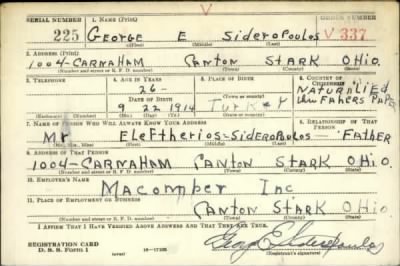 V
SERIAL NUMBER 1. NAME (Print) ORDER NUMBER
225 George E Sideropoulos V 337
(First) (Middle) (Last)
2. ADDRESS (Print)
1004-CARNAHAM CANTON STARK OHIO.
(Number and street or R. F. D. number) (Town) (County) (State)
3. TELEPHONE 4. AGE IN YEARS 5. PLACE OF BIRTH 6. COUNTRY OF CITIZENSHIP
26- NATURALIZED
DATE OF BIRTH Turkey thru FATHERS PAPER
9 22 1914
(Exchange) (Number) (Mo.) (Day) (Yr.) (State or country)
7. NAME OF PERSON WHO WILL ALWAYS KNOW YOUR ADDRESS 8. RELATIONSHIP OF THAT PERSON
Mr Eleftherios-Sideropoulos-FATHER
(Mr., Mrs., Miss) (First) (Middle) (Last)
9. ADDRESS OF THAT PERSON
1004-CARNAHAM CANTON STARK OHIO.
(Number and street or R. F. D. number) (Town) (County) (State)
10. EMPLOYER'S NAME
Macomber Inc
11. PLACE OF EMPLOYMENT OR BUSINESS
CANTON STARK OHIO.
(Number and street or R. F. D. number) (Town) (County) (State)
I AFFIRM THAT I HAVE VERIFIED ABOVE ANSWERS AND THAT THEY ARE TRUE.
REGISTRATION CARD
D. S. S. Form 1 16-17105 (Registrant's signature)